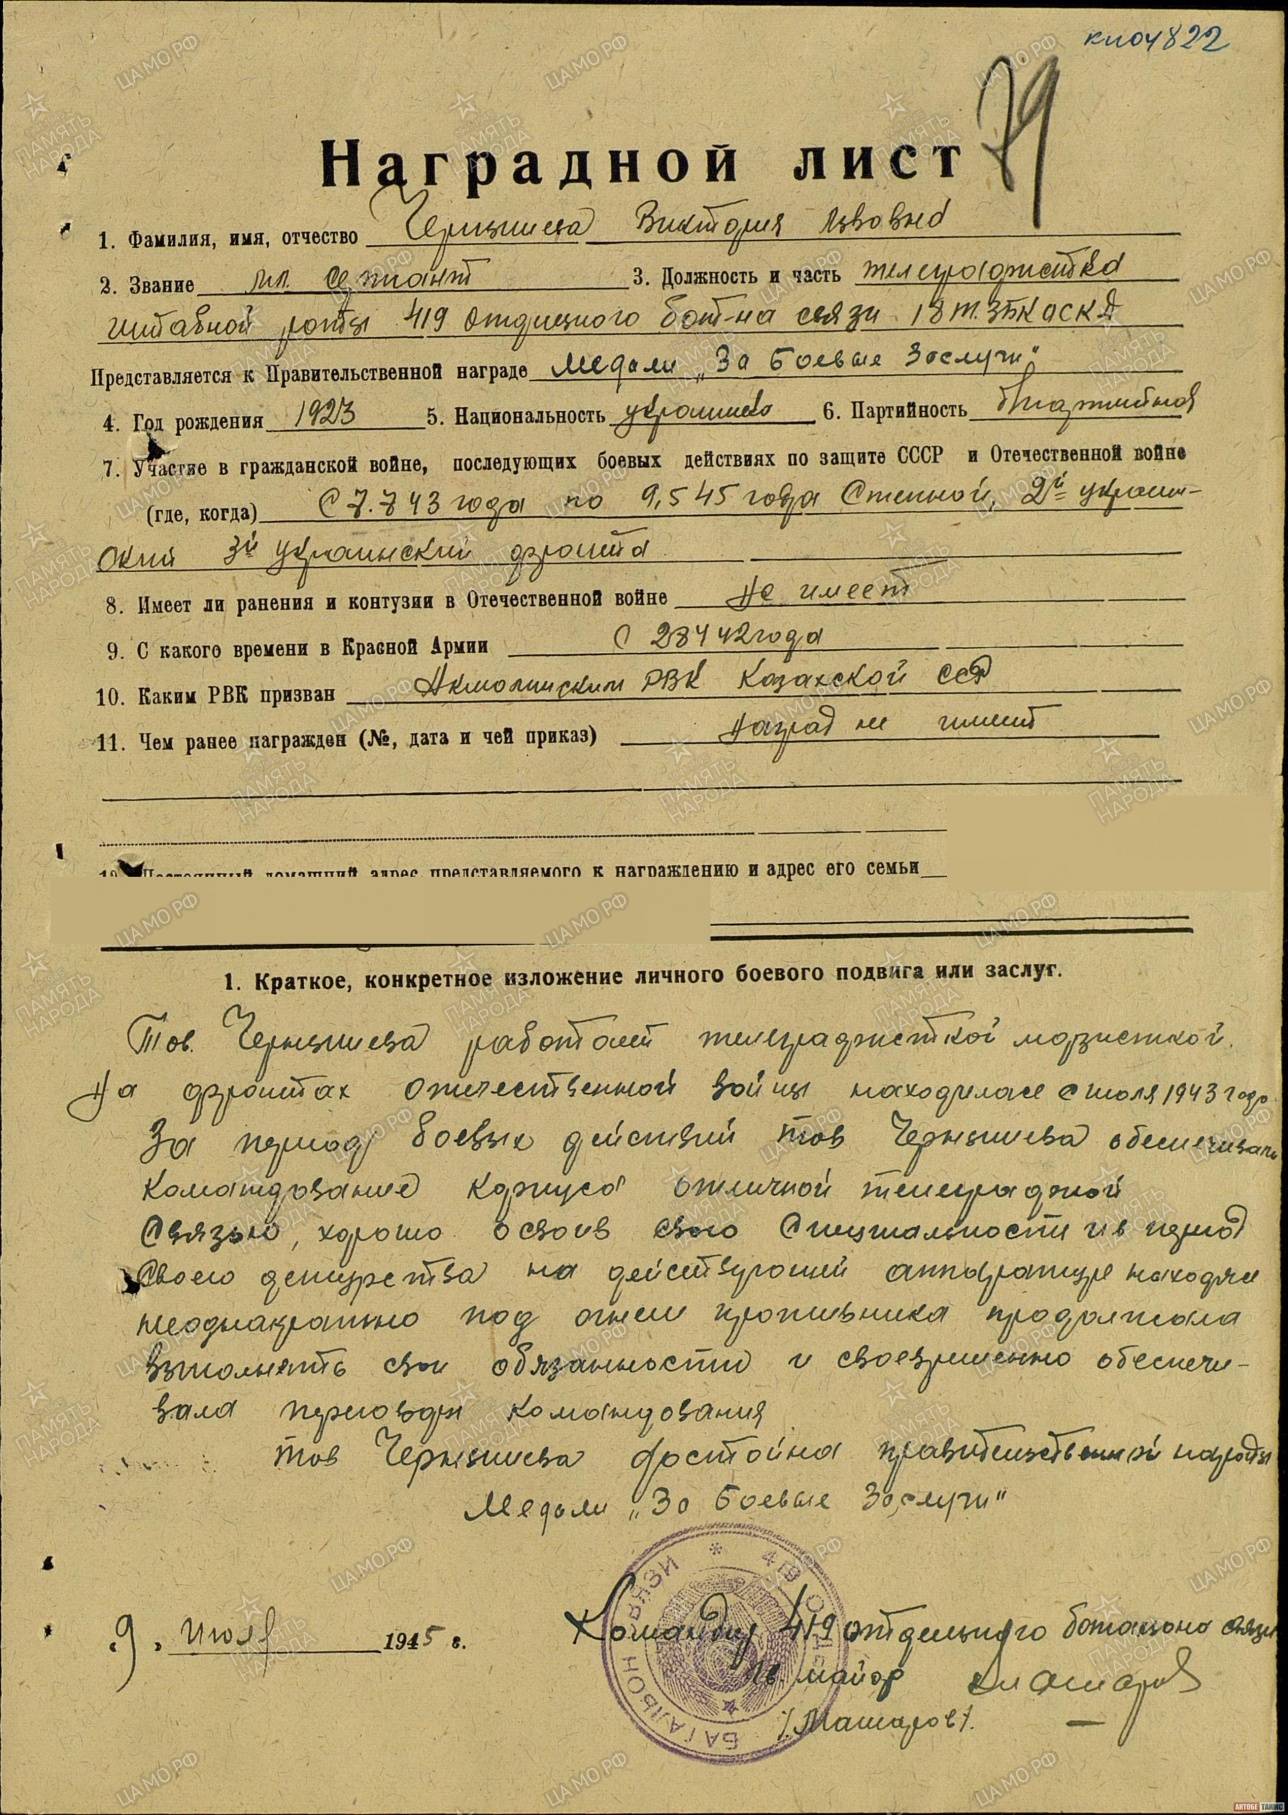 кпоч822
79
Наградной лист
1. Фамилия, имя, отчество Чернышева Виктория Львовна
2. Звание мл. сержант 3. Должность и часть телеграфистка
штабной роты 419 отдельного бат-на связи 18 т. ЗБКАСКД
Представляется к Правительственной награде Медали „За Боевые Заслуги"
4. Год рождения 1923 5. Национальность украинка 6. Партийность б/партийная
7. Участие в гражданской войне, последующих боевых действиях по защите СССР и Отечественной войне
(где, когда) С 7.7 43 года по 9,5 45 года Степной, 2й украин-
ский 3й украинский фронта
8. Имеет ли ранения и контузии в Отечественной войне Не имеет
9. С какого времени в Красной Армии С 28 4 42 года
10. Каким РВК призван Акмолинским РВК Казахской ССР
11. Чем ранее награжден (№, дата и чей приказ) Наград не имеет
12. Постоянный домашний адрес представляемого к награждению и адрес его семьи
1. Краткое, конкретное изложение личного боевого подвига или заслуг.
Тов. Чернышева работает телеграфисткой морзисткой.
На фронтах отечественной войны находилась с июля 1943 года.
За период боевых действий тов Чернышева обеспечивала
командование корпуса отличной телеграфной
связью, хорошо освоив свою специальность и в период
своего дежурства на действующей аппаратуре находясь
неоднократно под огнем противника продолжала
выполнять свои обязанности и своевременно обеспечи-
вала переговоры командования
тов Чернышева достойна правительственной награды
Медали „За Боевые Заслуги"
БАТАЛЬОН СВЯЗИ * 419
9. Июля 1945 г.
Командир 419 отдельного батальона связи
гв. майор
/Машаров/.